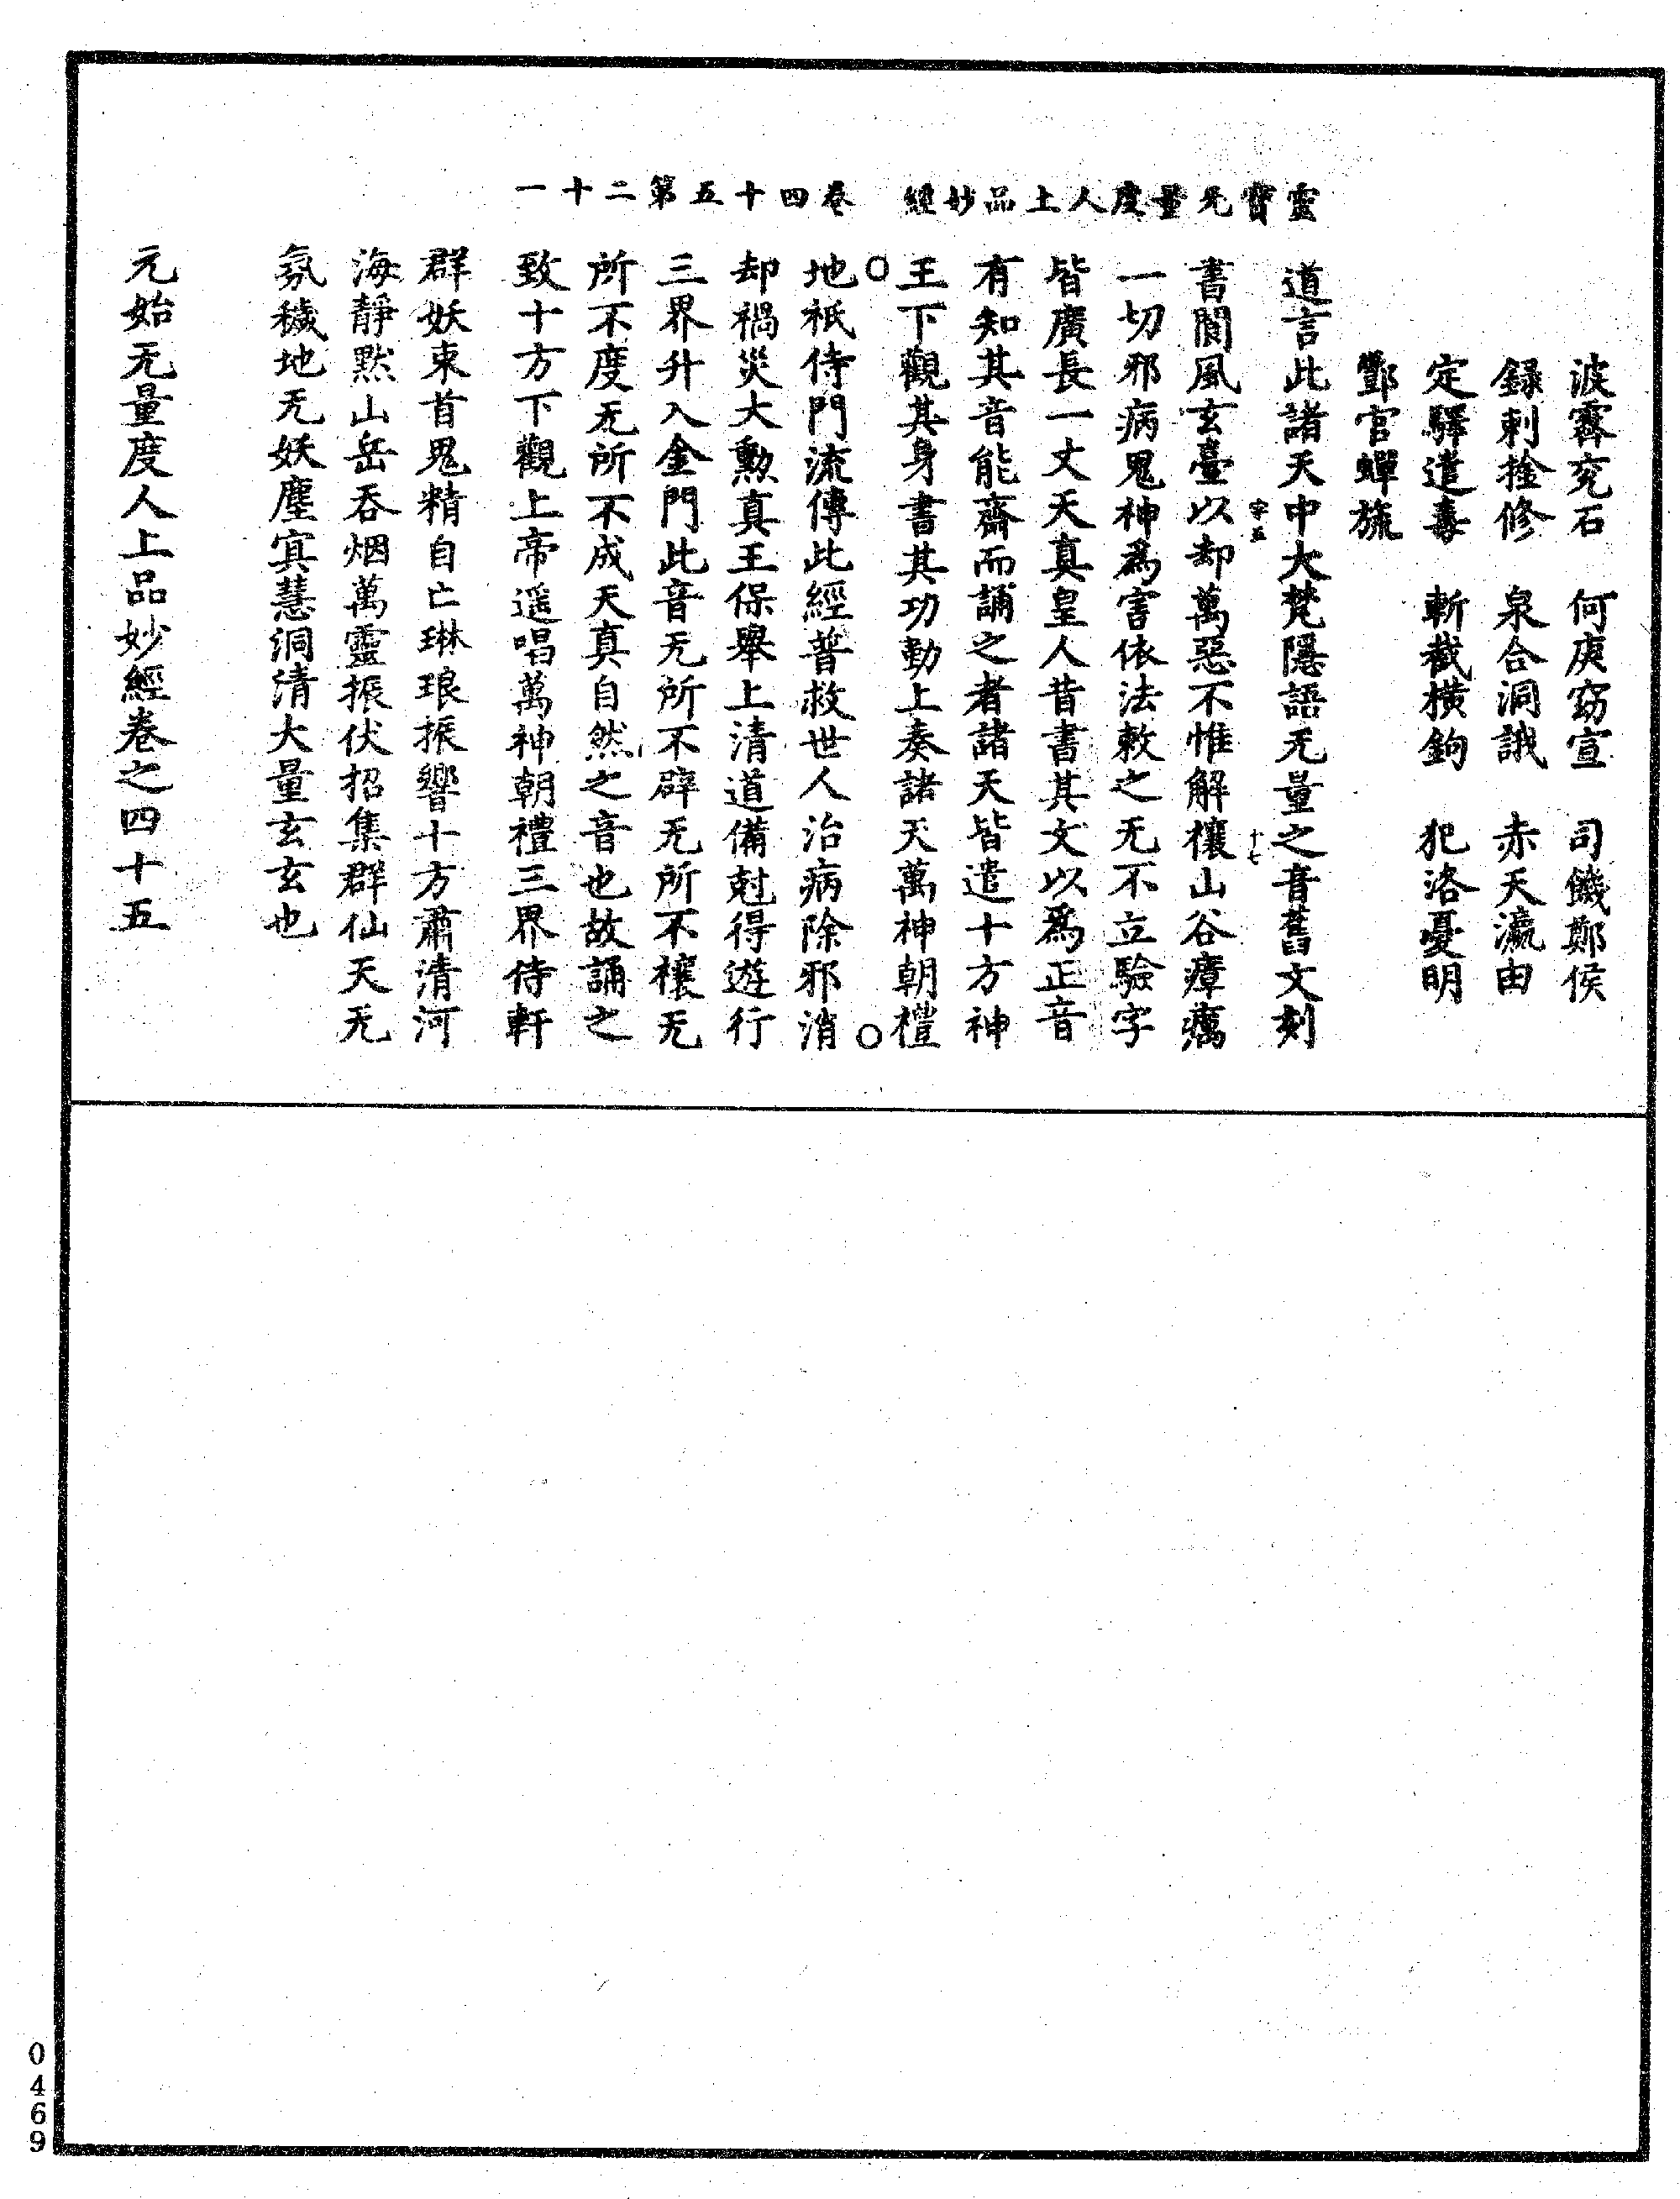 靈寶无量度人上品妙經 卷四十五第二十一
波霽兖石 何庾窈宣 司饑鄭侯
録剌捡修 泉合洞誐 赤天瀛由
定驛遣毒 斬截横鉤 犯洛憂明
酆官蟬旒
道言此諸天中大梵隱語无量之音舊文刻
字五 十七
書閬風玄臺以却萬惡不惟解禳山谷瘴癘
一切邪病鬼神爲害依法敕之无不立驗字
皆廣長一丈天真皇人昔書其文以爲正音
有知其音能齋而誦之者諸天皆遣十方神
王下觀其身書其功勳上奏諸天萬神朝禮
地祇侍門流傳此經普救世人治病除邪消
却禍災大勳真王保舉上清道備尅得遊行
三界升入金門此音无所不辟无所不禳无
所不度无所不成天真自然之音也故誦之
致十方下觀上帝遥唱萬神朝禮三界侍軒
群妖束首鬼精自亡琳琅振響十方肅清河
海靜默山岳吞烟萬靈振伏招集群仙天无
氛穢地无妖塵冥慧洞清大量玄玄也
元始无量度人上品妙經卷之四十五
0469